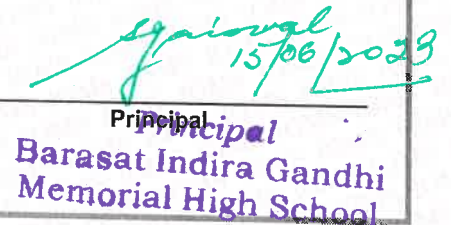 15/06/2023
Principal
Principal
Barasat Indira Gandhi
Memorial High School